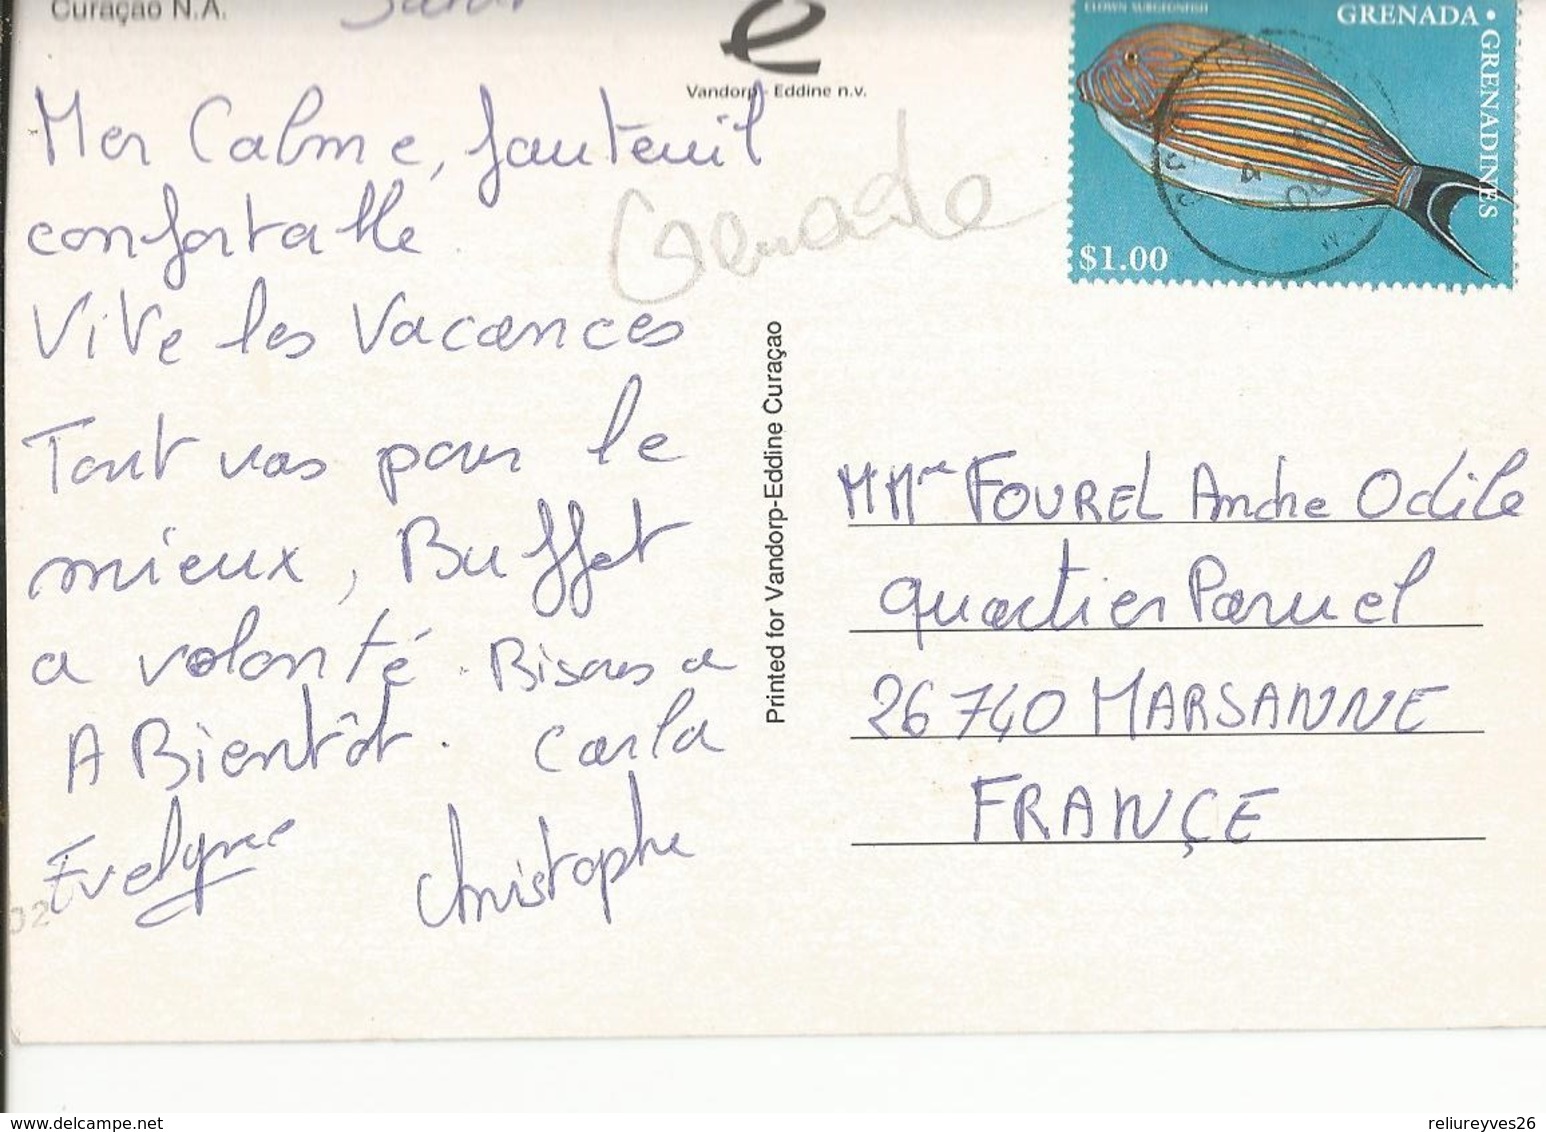 Curaçao N.A.
Vandorp - Eddine n.v.
Mer Calme, fauteuil
confortable.
Vive les Vacances
Tout vas pour le
mieux, Buffet
a volonté. Bisous a
A Bientôt. Carla
Evelyne Christophe
Grenade
Printed for Vandorp-Eddine Curaçao
CLOWN SURGEONFISH
GRENADA • GRENADINES
$1.00
M Mme FOUREL Andre Odile
quartier Paruel
26740 MARSANNE
FRANÇE
02
www.delcampe.net
reliureyves26